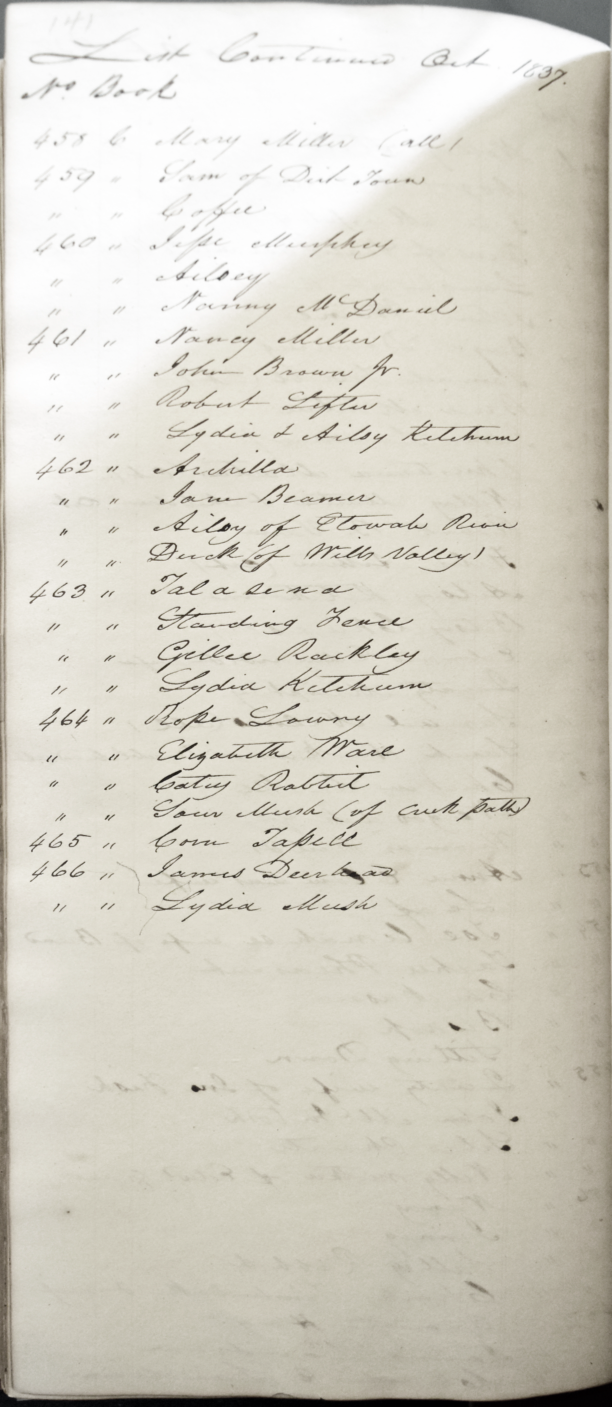 141
List Continued Oct. 1837.
No Book
458 C Mary Miller (all)
459 " Sam of Dirt Town
" " Coffee
460 " Jesse Murphey
" " Ailsey
" " Nanny McDaniel
461 " Nancy Miller
" " John Brown Jr.
" " Robert Lefter
" " Lydia & Ailsy Ketchum
462 " Archilla
" " Jane Beamer
" " Ailsy of Etowah River
" " Duck (of Wills Valley)
463 " Talasena
" " Standing Fence
" " Gillee Rackley
" " Lydia Ketchum
464 " Rope Lowry
" " Elizabeth Ware
" " Catey Rabbit
" " Sour Mush (of Creek path)
465 " Corn Tassell
466 " James Deerhead
" " Lydia Mush